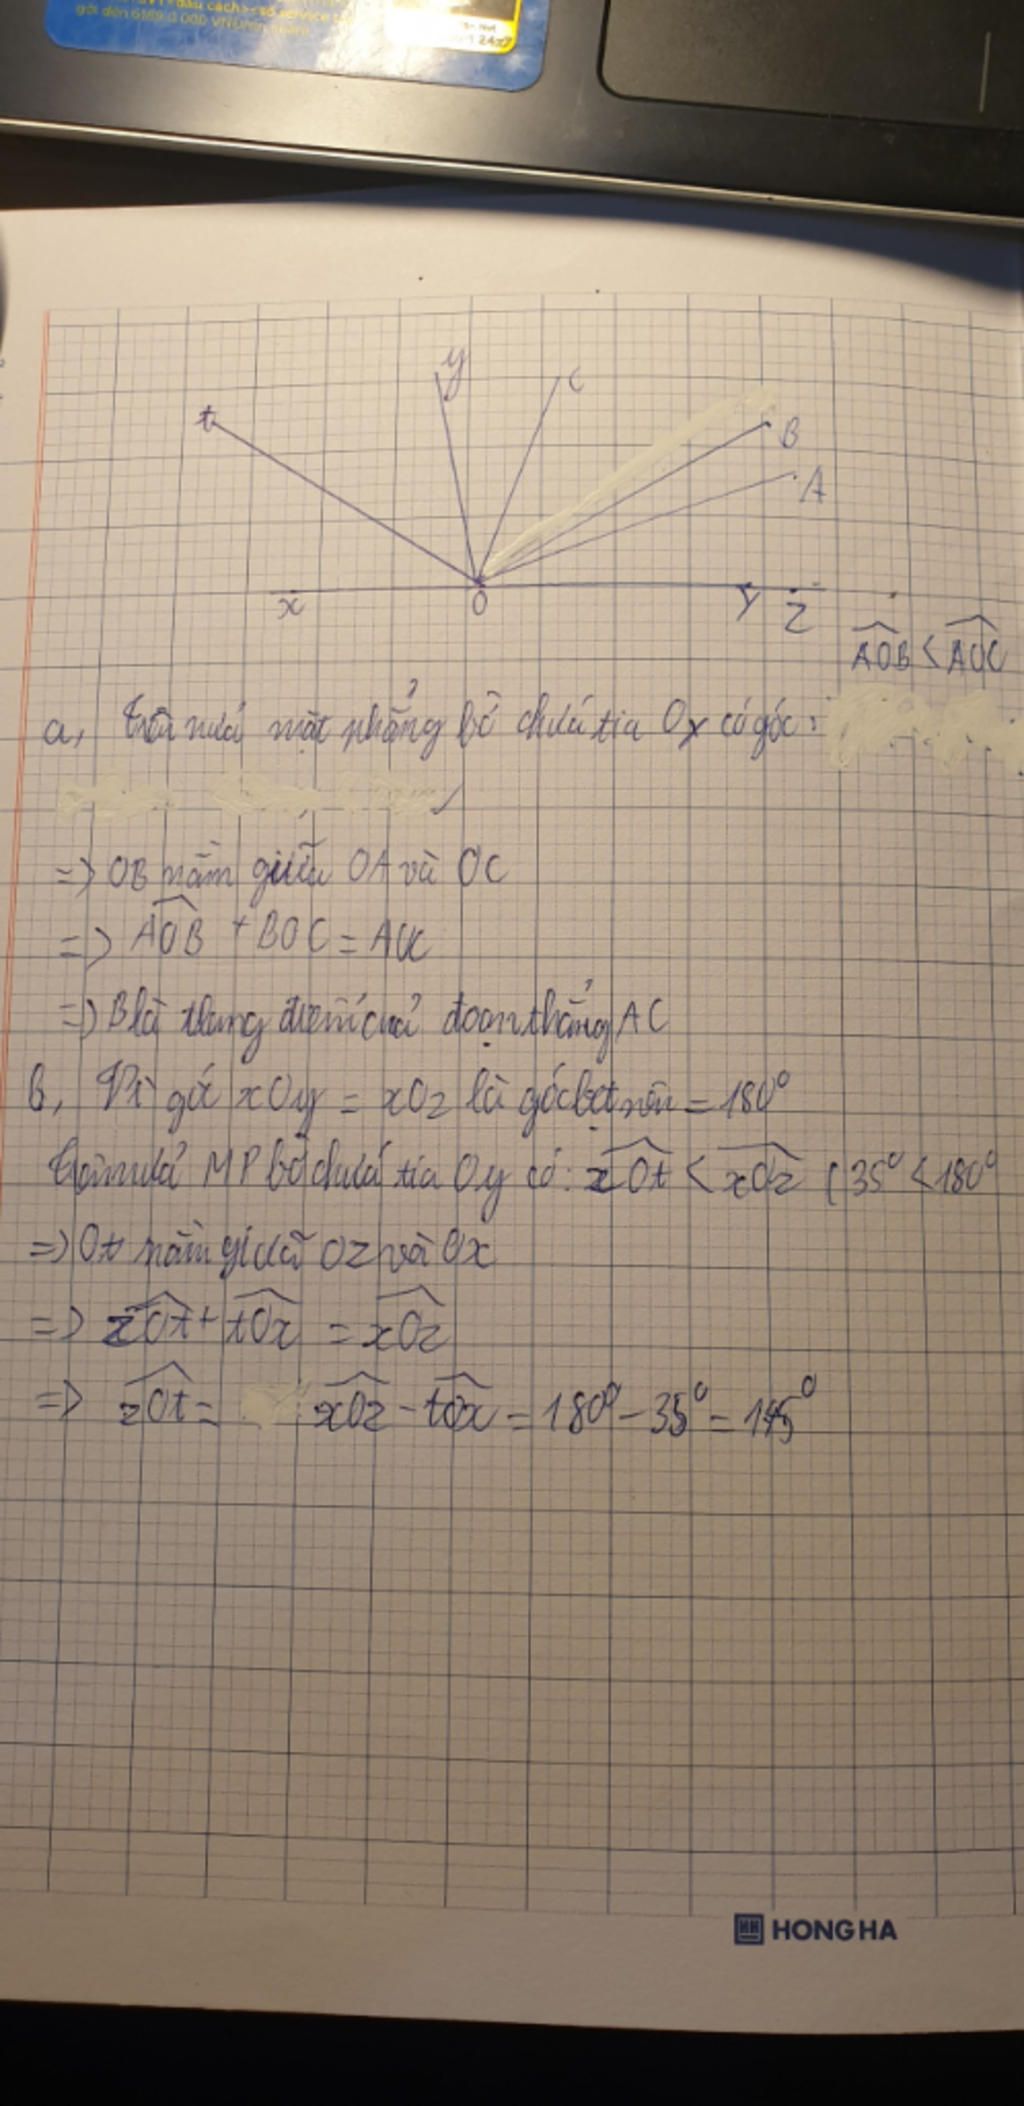 gọi điện 6189.0 000 VNĐ
24x7
y
C
t
B
A
x
O
y
Z
AOB < AOC
a, trên nửa mặt phẳng bờ chứa tia Ox có góc:
=> OB nằm giữa OA và OC
=> AOB + BOC = AOC
=> B là trung điểm của đoạn thẳng AC
b, Vì góc xOy = xOz là góc bẹt nên = 180°
trên nửa MP bờ chứa tia Oy có: xOt < xOz (35° < 180°
=> Ot nằm giữa Oz và Ox
=> zOt + tOx = xOz
=> zOt = xOz - tOx = 180° - 35° = 145°
HONG HA